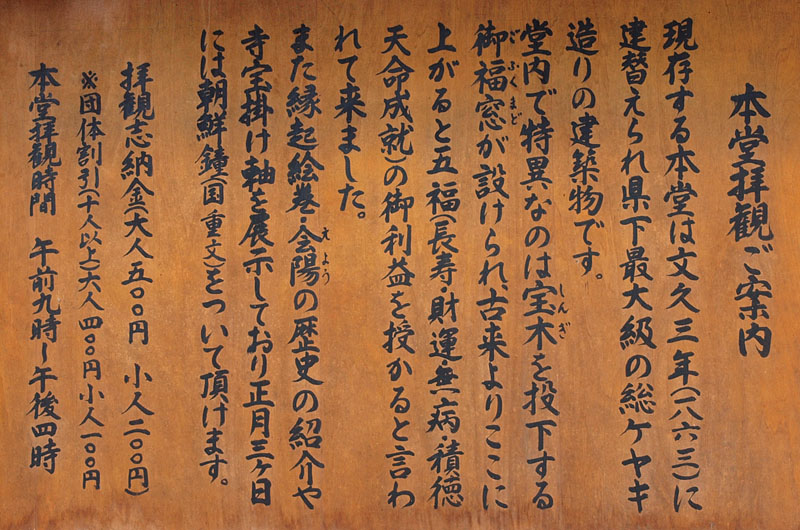 本堂拝観ご案内
現存する本堂は文久三年(一八六三)に
建替えられ県下最大級の総ケヤキ
造りの建築物です。
堂内で特異なのは宝木を投下する
しんぎ
御福窓が設けられ、古来よりここに
ごふくまど
上がると五福(長寿・財運・無病・積徳
天命成就)の御利益を授かると言わ
れて来ました。
また縁起絵巻・会陽の歴史の紹介や
えよう
寺宝掛け軸を展示しており正月三ヶ日
には朝鮮鐘(国重文)をついて頂けます。
拝観志納金(大人五〇〇円 小人二〇〇円)
※団体割引(十人以上)大人四〇〇円小人一〇〇円
本堂拝観時間 午前九時~午後四時